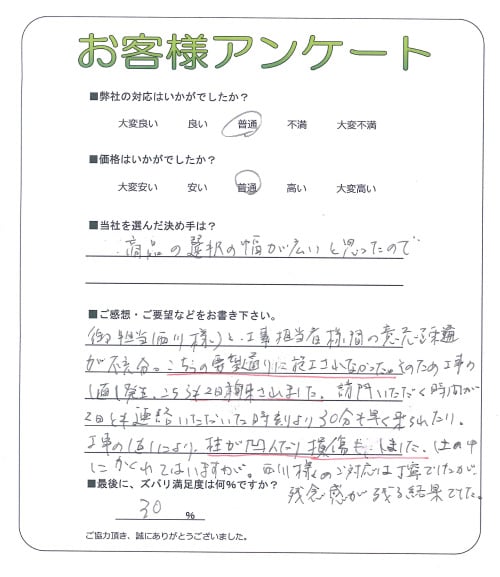 お客様アンケート
■弊社の対応はいかがでしたか?
大変良い 良い 普通 不満 大変不満
■価格はいかがでしたか?
大変安い 安い 普通 高い 大変高い
■当社を選んだ決め手は?
商品の選択の幅が広いと思ったので
■ご感想・ご要望などをお書き下さい。
御担当(西川様)と、工事担当者様間の意思疎通
が不充分。こちらの要望通りに施工されなかった。そのため工事の
直し発生、こちらも2日拘束されました。訪問いただく時間が
2日とも連絡いただいた時刻より30分も早く来られたり。
工事の直しにより、柱が凹んだり損傷もしました。(土の中
にかくれてはいますが。西川様のご対応は丁寧でしたが
残念感が残る結果でした。
■最後に、ズバリ満足度は何%ですか?
30 %
ご協力頂き、誠にありがとうございました。